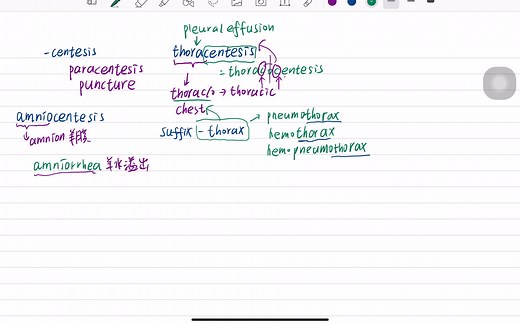 pleural effusion
-centesis
thoracentesis
paracentesis
= thoracocentesis
puncture
thorac/o → thoracic
chest
amniocentesis
amnion 羊膜
suffix - thorax → pneumothorax
hemothorax
hemopneumothorax
amniorrhea 羊水溢出